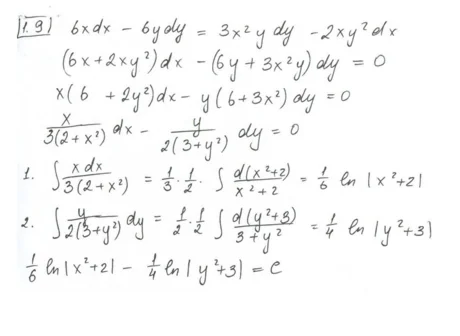 1.9 6xdx - 6ydy = 3x²ydy - 2xy²dx
(6x+2xy²)dx - (6y+3x²y)dy = 0
x(6 + 2y²)dx - y(6+3x²)dy = 0
x/3(2+x²) dx - y/2(3+y²) dy = 0
1. ∫ xdx/3(2+x²) = 1/3 · 1/2 · ∫ d(x²+2)/x²+2 = 1/6 ln |x²+2|
2. ∫ y/2(3+y²) dy = 1/2 · 1/2 ∫ d(y²+3)/3+y² = 1/4 ln |y²+3|
1/6 ln|x²+2| - 1/4 ln|y²+3| = C